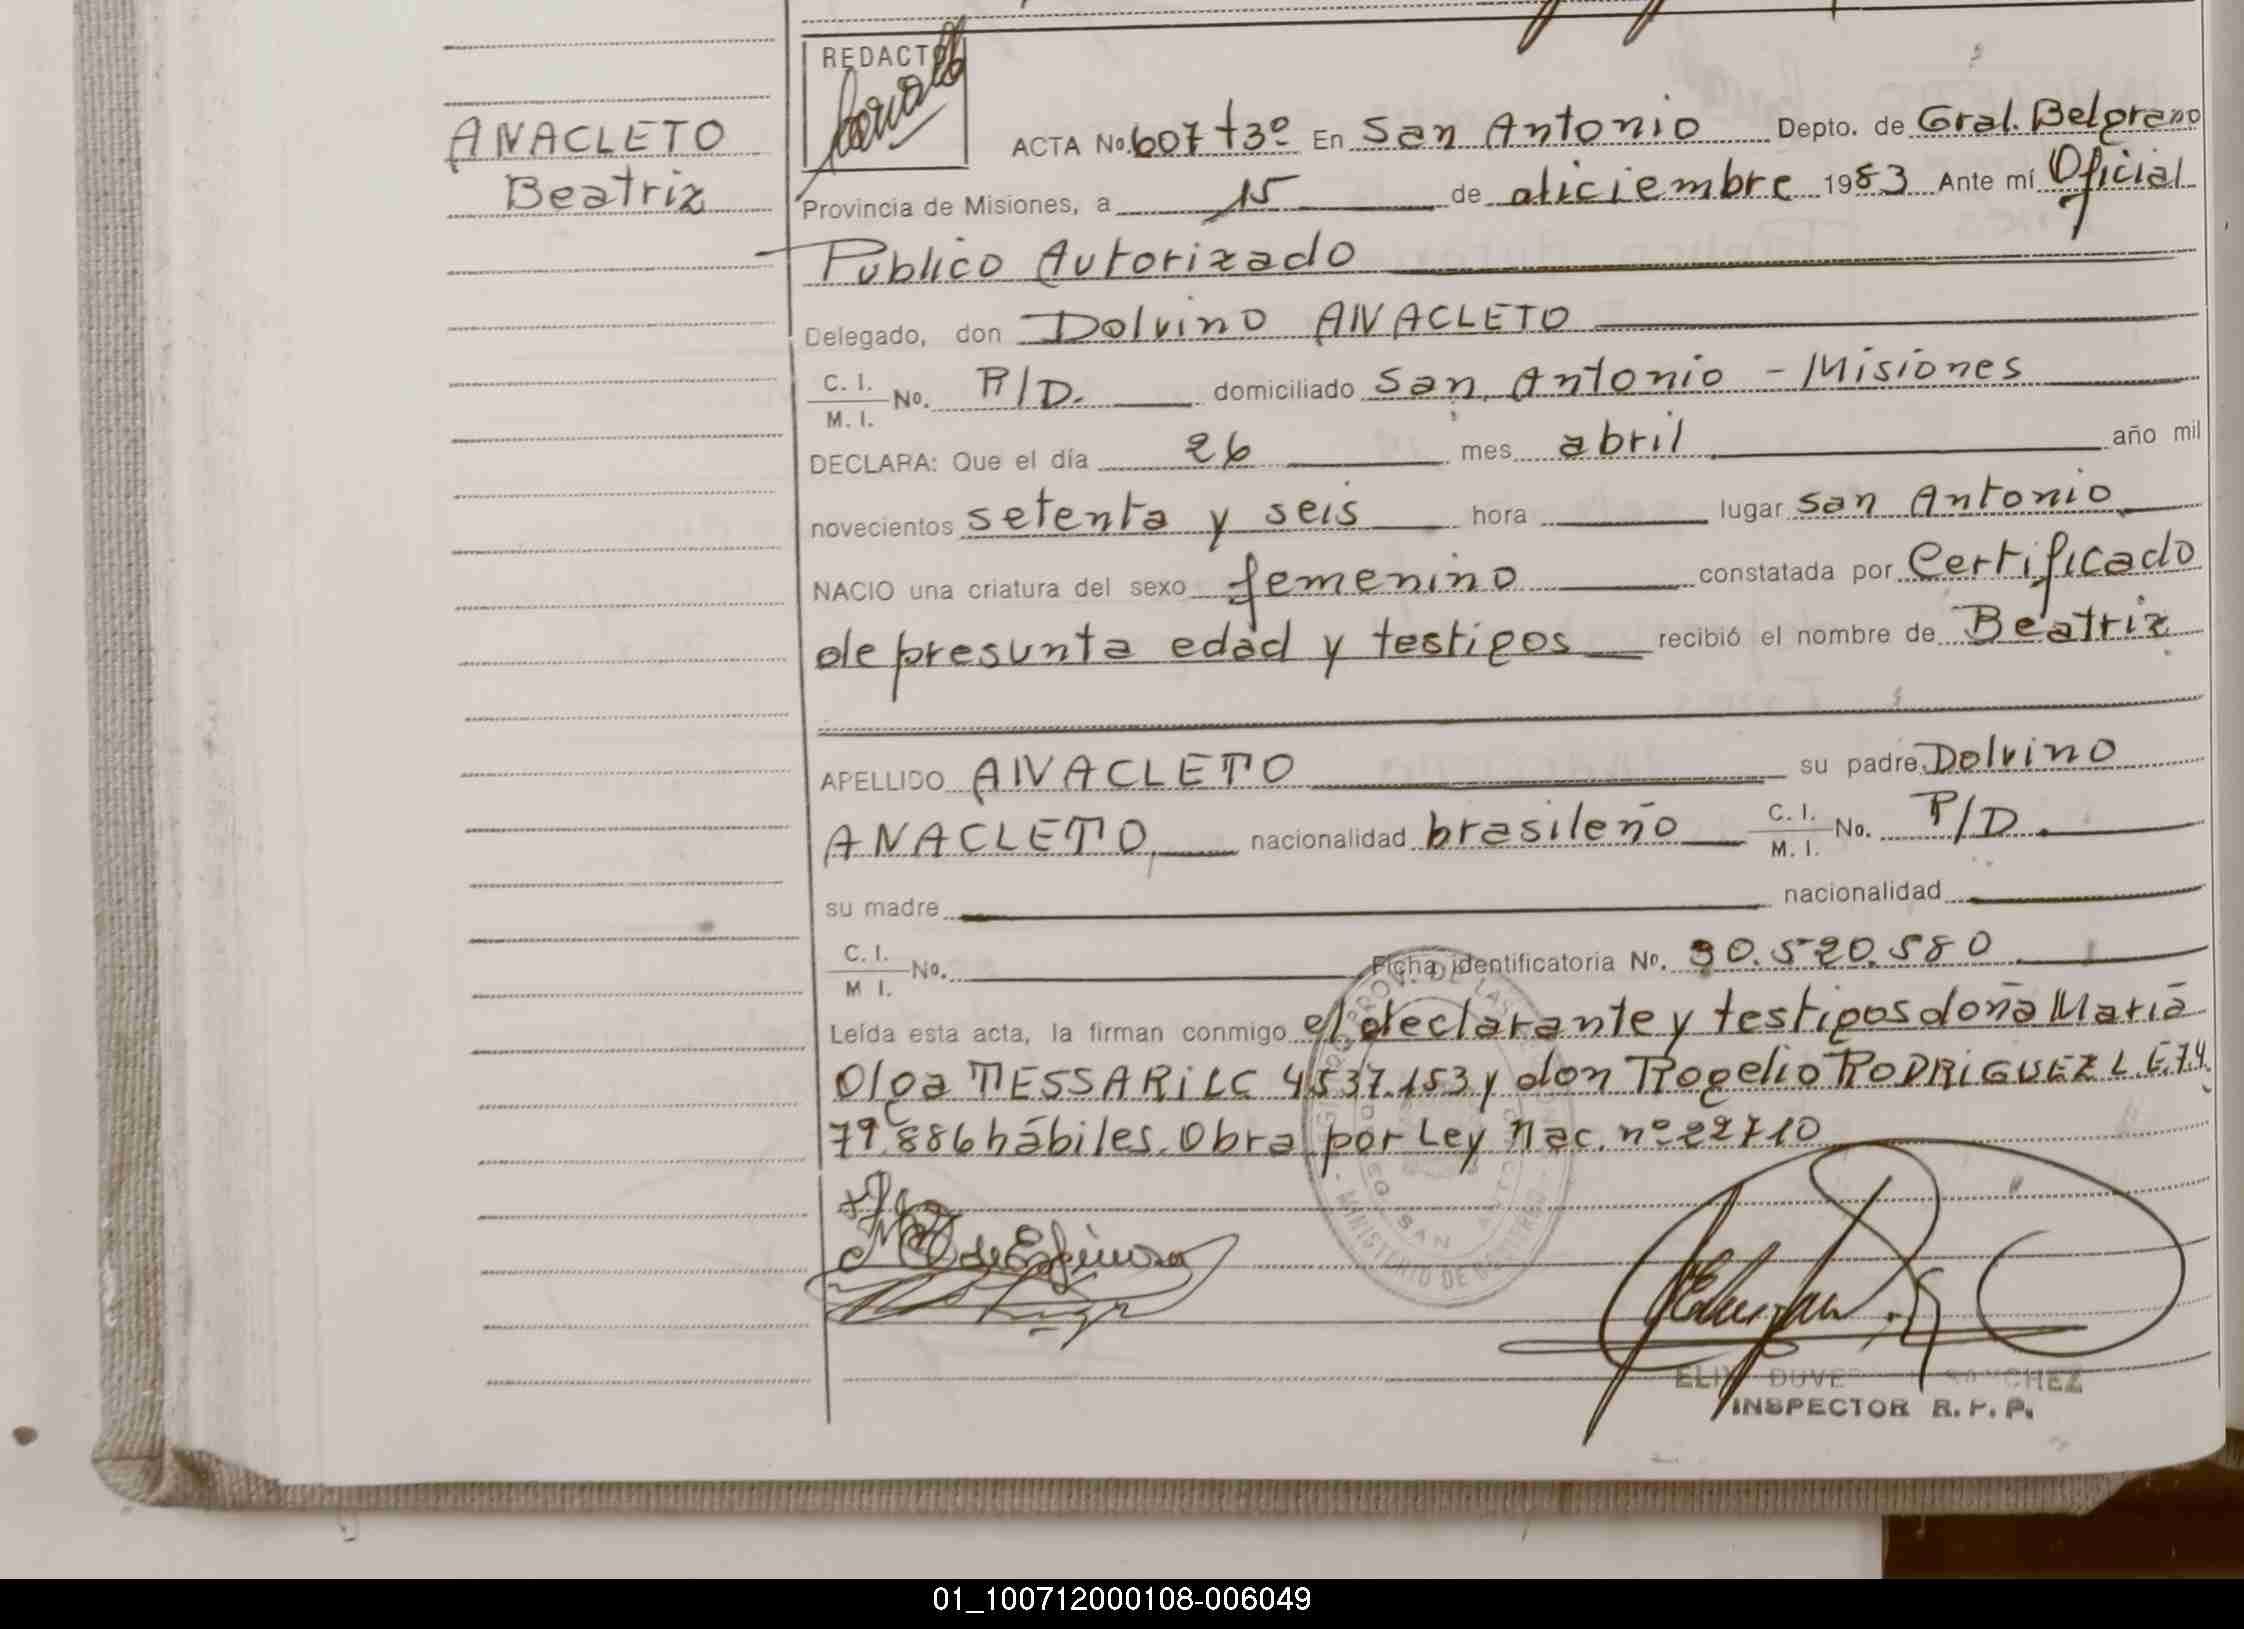 REDACTO
ANACLETO
Beatriz
ACTA No. 607 t3º En San Antonio Depto. de Gral. Belgrano
Provincia de Misiones, a 15 de diciembre 1983 Ante mí Oficial
Publico Autorizado
Delegado, don Dolvino ANACLETO
C. I. M. I. No. P/D. domiciliado San Antonio - Misiones
DECLARA: Que el día 26 mes abril año mil
novecientos setenta y seis hora lugar San Antonio
NACIO una criatura del sexo femenino constatada por Certificado
de presunta edad y testigos recibió el nombre de Beatriz
APELLIDO ANACLETO su padre Dolvino
ANACLETO nacionalidad brasileño C. I. M. I. No. P/D.
su madre nacionalidad
C. I. M I. No. Ficha identificatoria No. 30.520.580
Leída esta acta, la firman conmigo el declarante y testigos doña Maria
Olga TESSARI LC 4537.153 y don Rogelio RODRIGUEZ L.E.7.4
79.886 hábiles. Obra por Ley Nac. nº 22710
MINISTERIO DE GOBIERNO
SAN ANTONIO
SANCHEZ
INSPECTOR R. P. P.
01_100712000108-006049